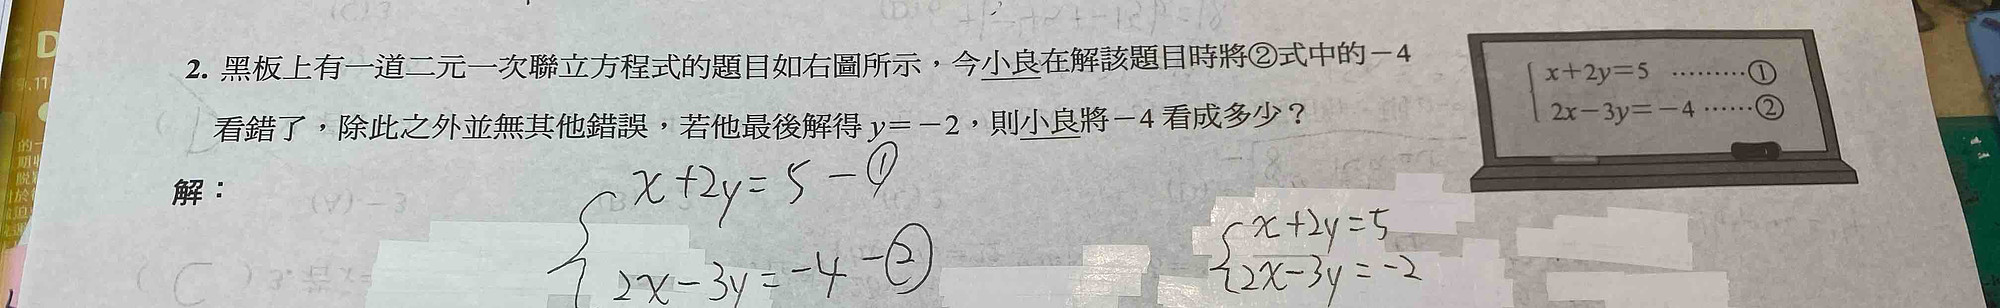 2. 黑板上有一道二元一次聯立方程式的題目如右圖所示，今小良在解該題目時將②式中的－4
看錯了，除此之外並無其他錯誤，若他最後解得 y＝－2，則小良將－4 看成多少？
x＋2y＝5 ………①
2x－3y＝－4 ……②
解：
x+2y=5 －①
2x－3y=－4 －②
x+2y=5
2x－3y=－2